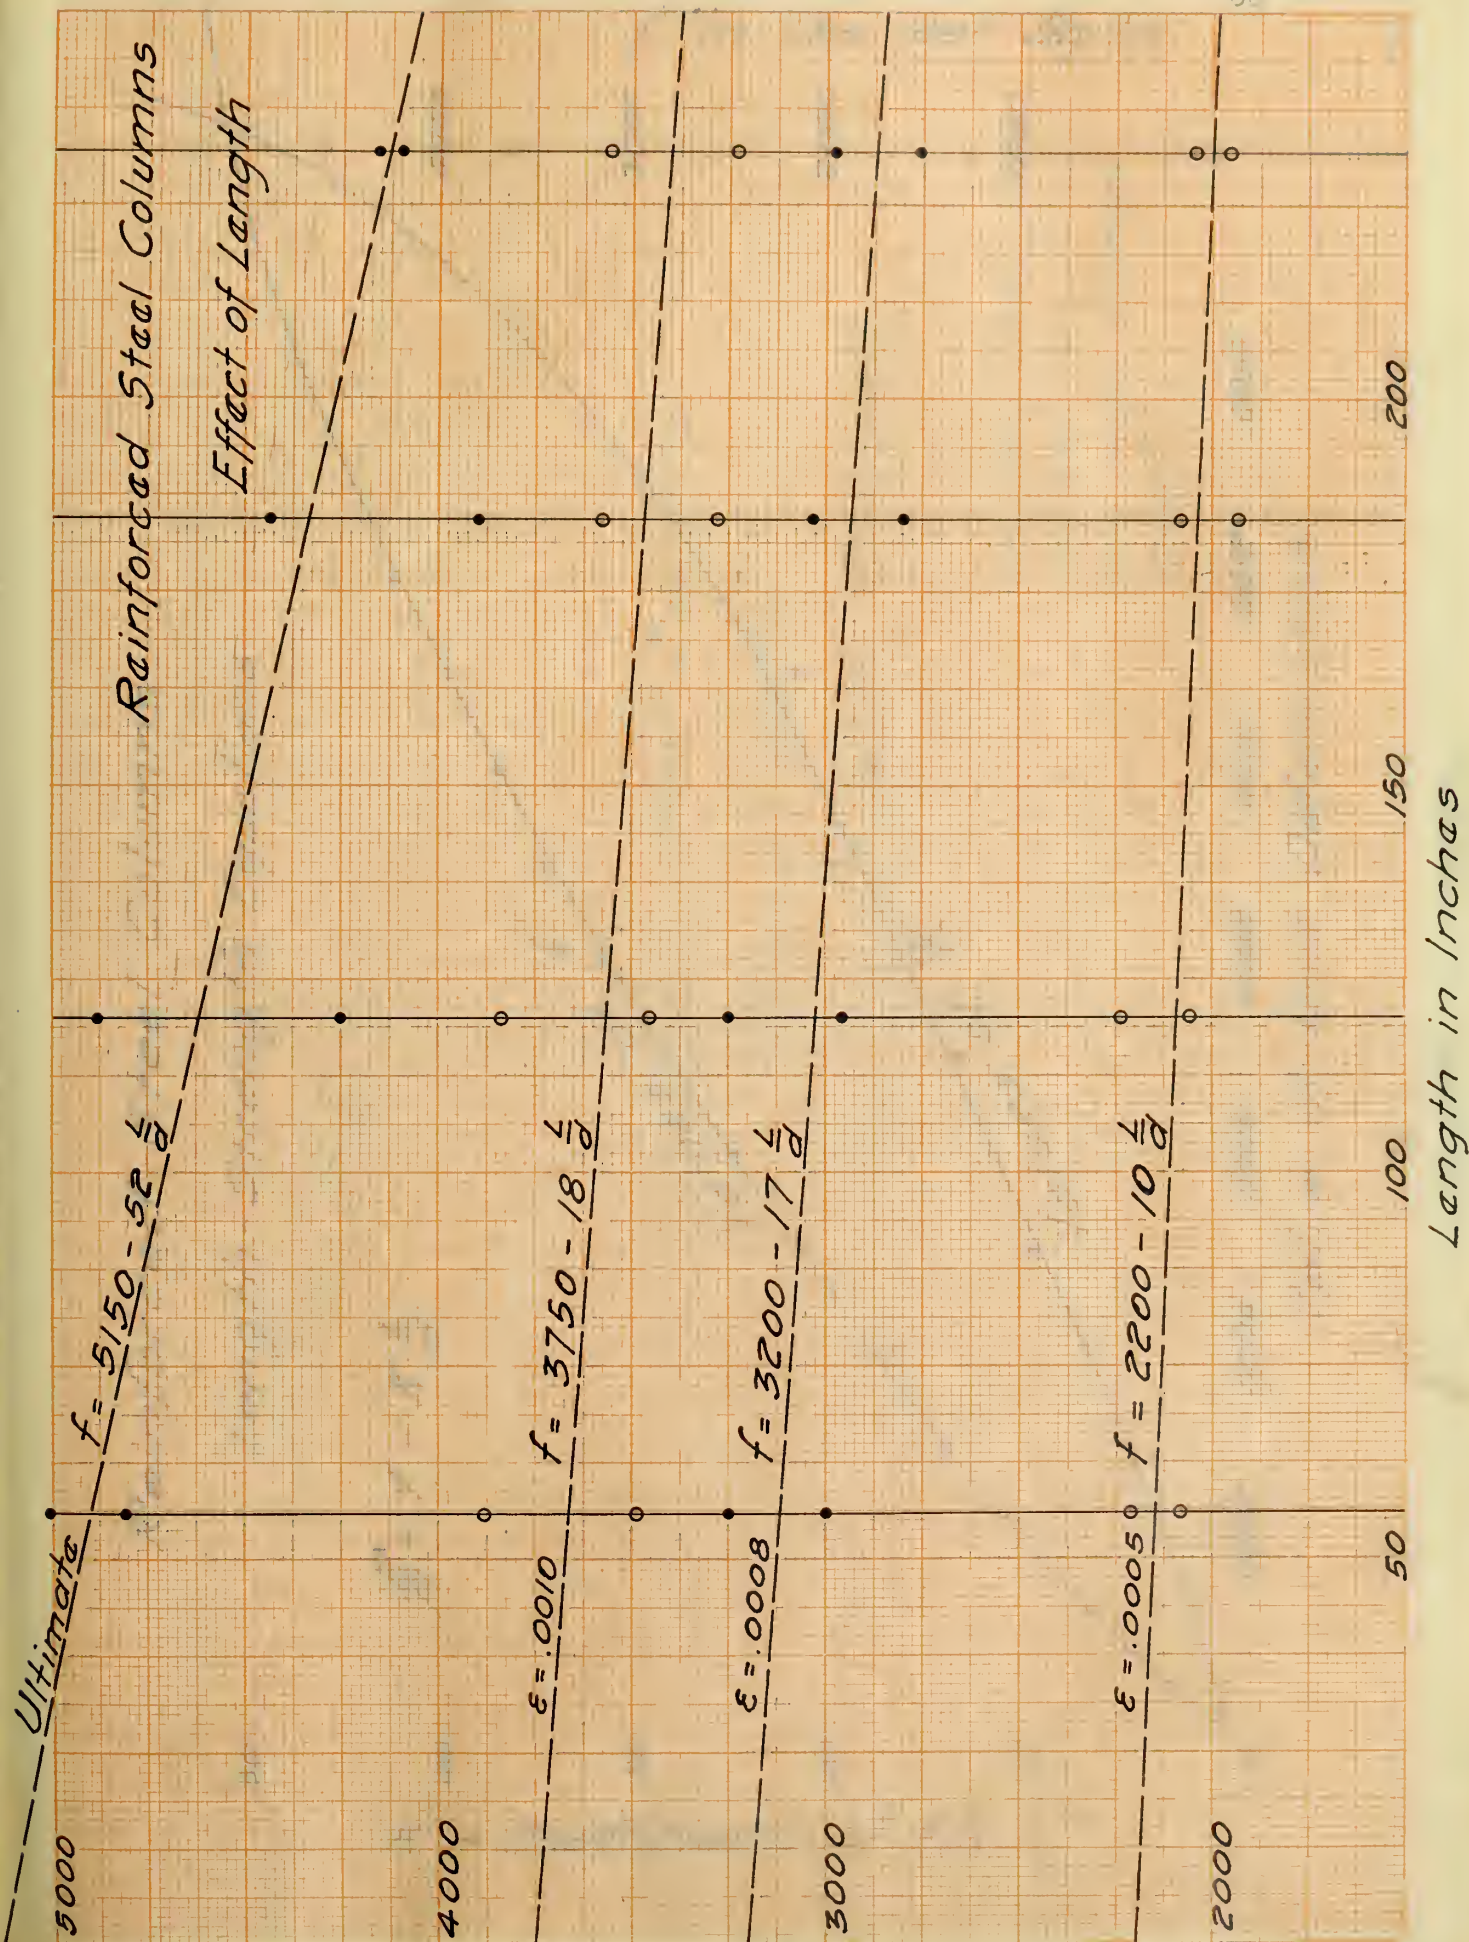 Reinforced Steel Columns
Effect of Length
Ultimate
f = 5150 - 52 L/d
ε = .0010 f = 3750 - 18 L/d
ε = .0008 f = 3200 - 17 L/d
ε = .0005 f = 2200 - 10 L/d
5000
4000
3000
2000
50
100
150
200
Length in Inches